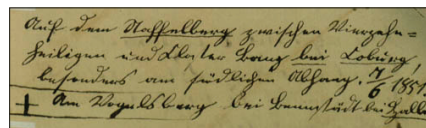 Auf dem Staffelberg zwischen Vierzehn=
heiligen und Kloster Banz bei Coburg,
besonders am südlichen Abhang. 7/6 1851.
+ Am Vogelsberg bei Bennstädt bei Halle